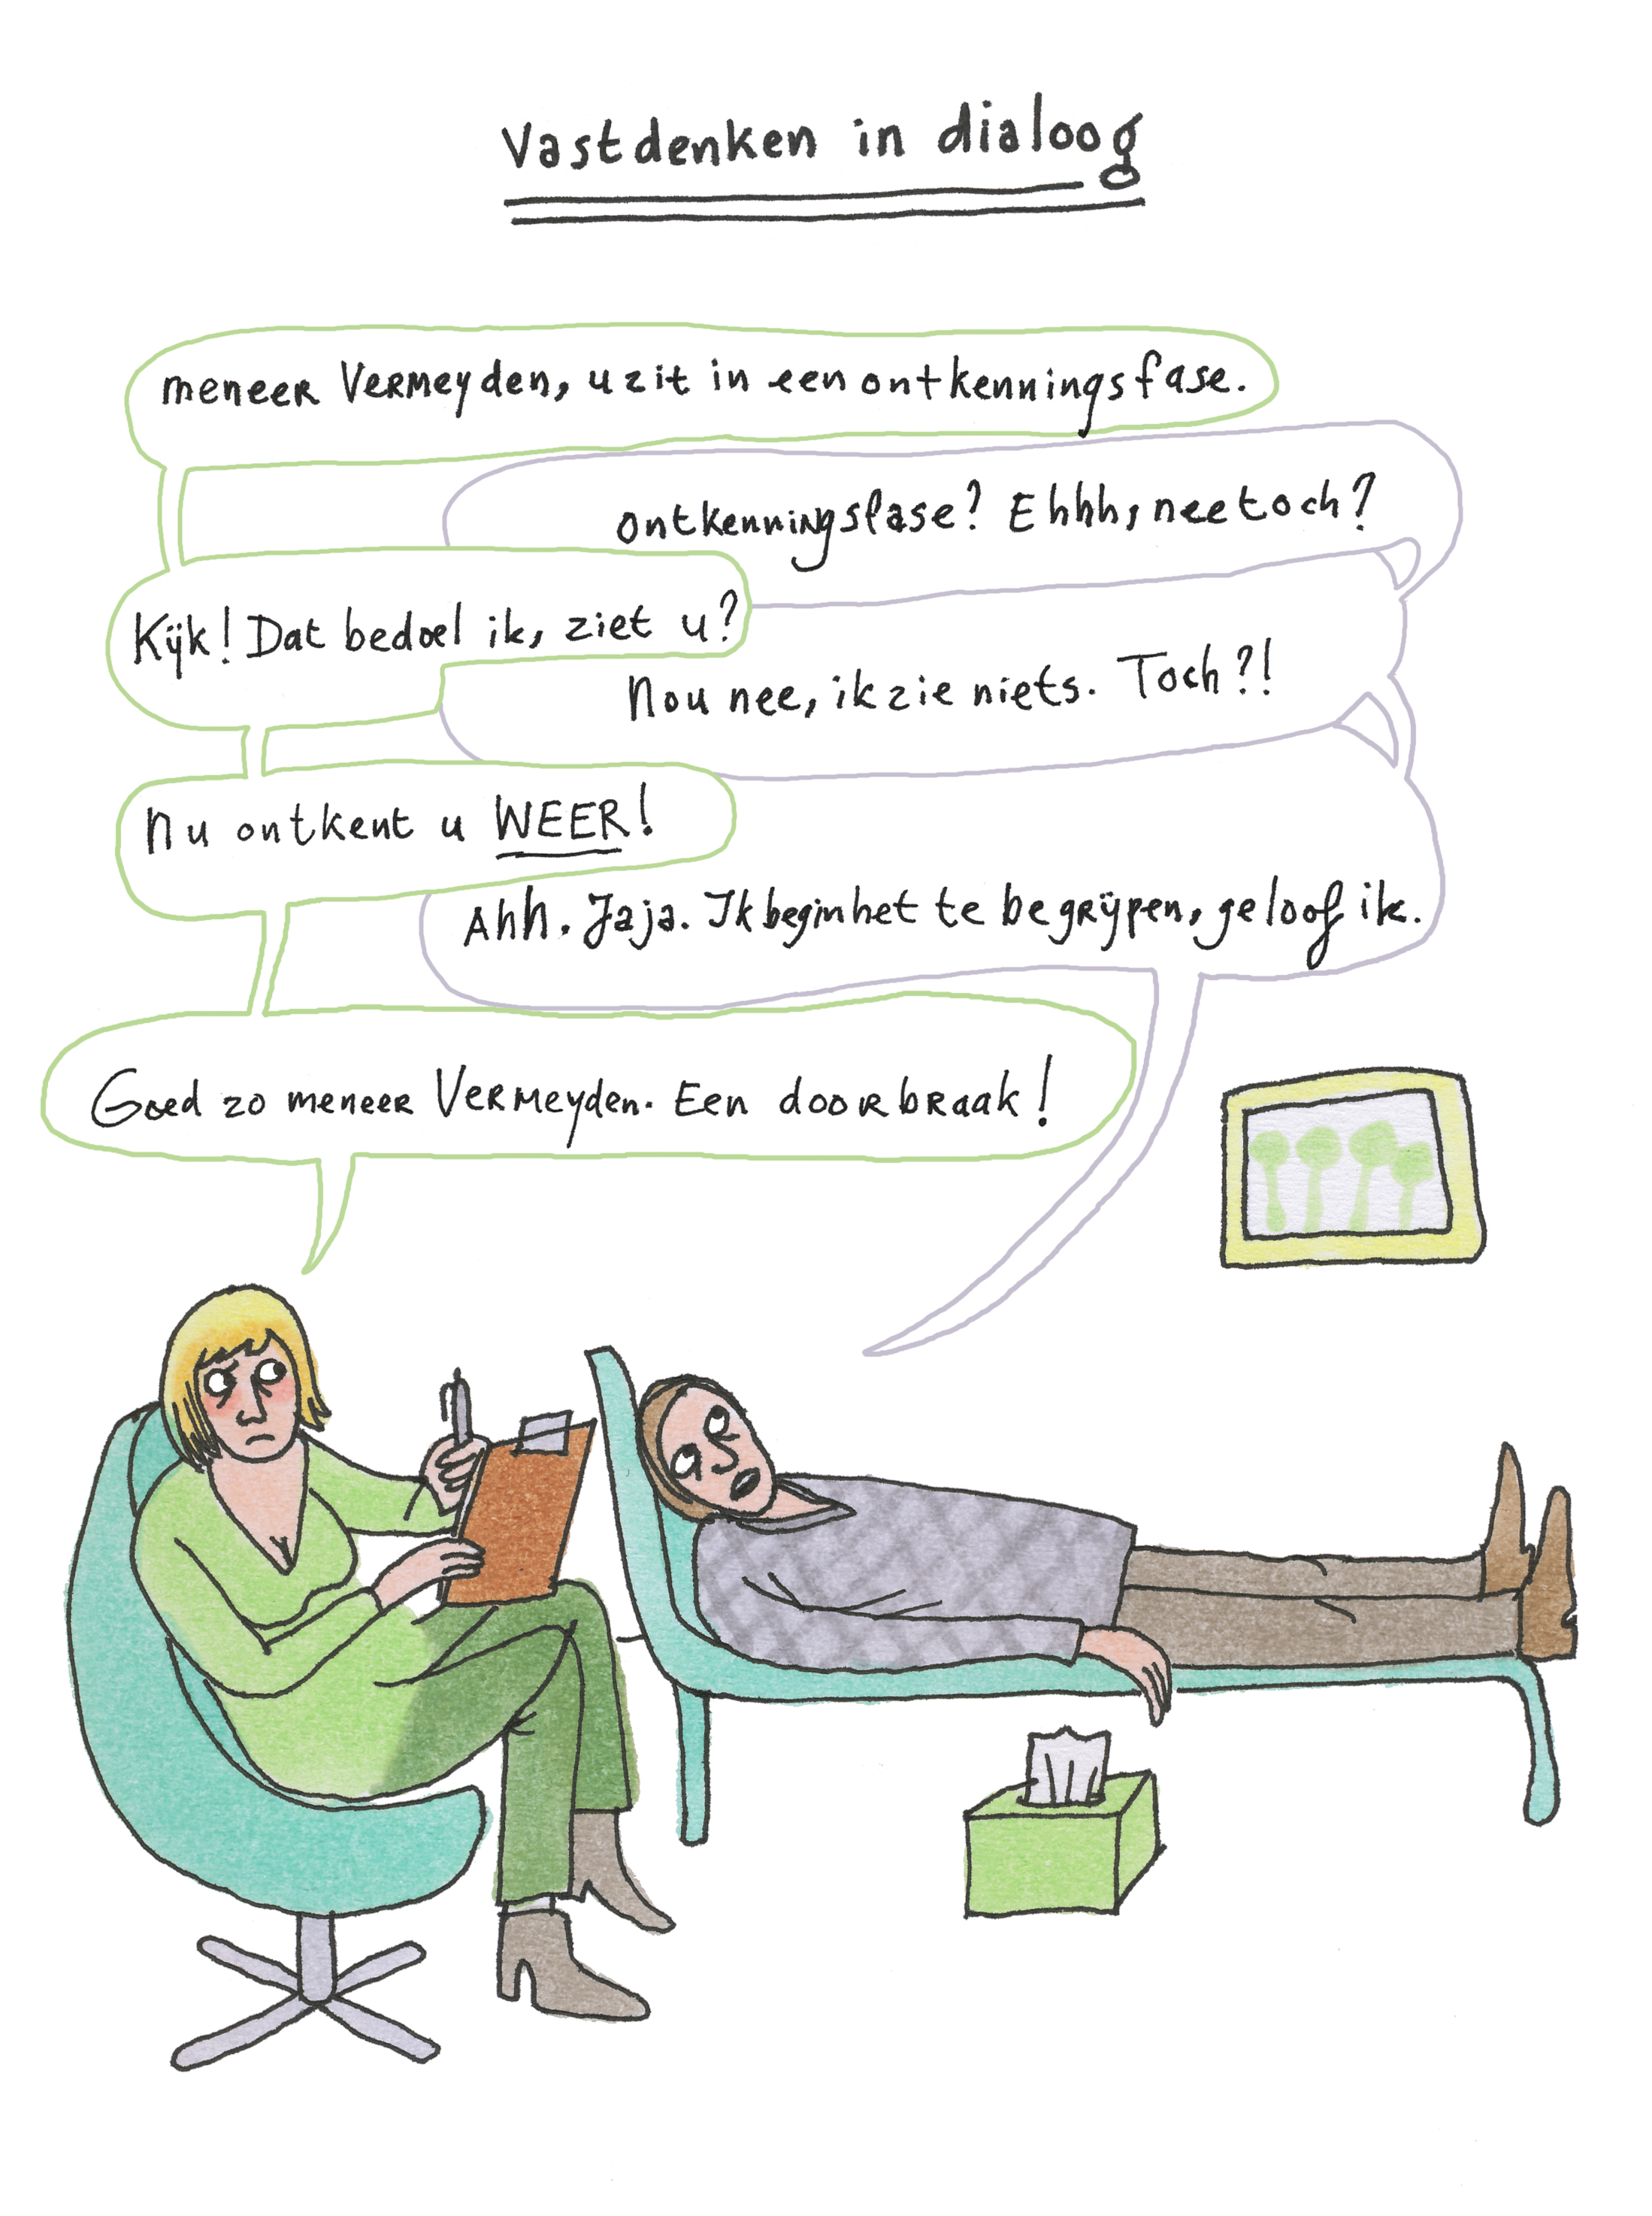 Vastdenken in dialoog
meneer Vermeyden, u zit in een ontkenningsfase.
ontkenningsfase? Ehhh, nee toch?
Kijk! Dat bedoel ik, ziet u?
Nou nee, ik zie niets. Toch?!
Nu ontkent u WEER!
Ahh. Jaja. Ik begin het te begrijpen, geloof ik.
Goed zo meneer Vermeyden. Een doorbraak!